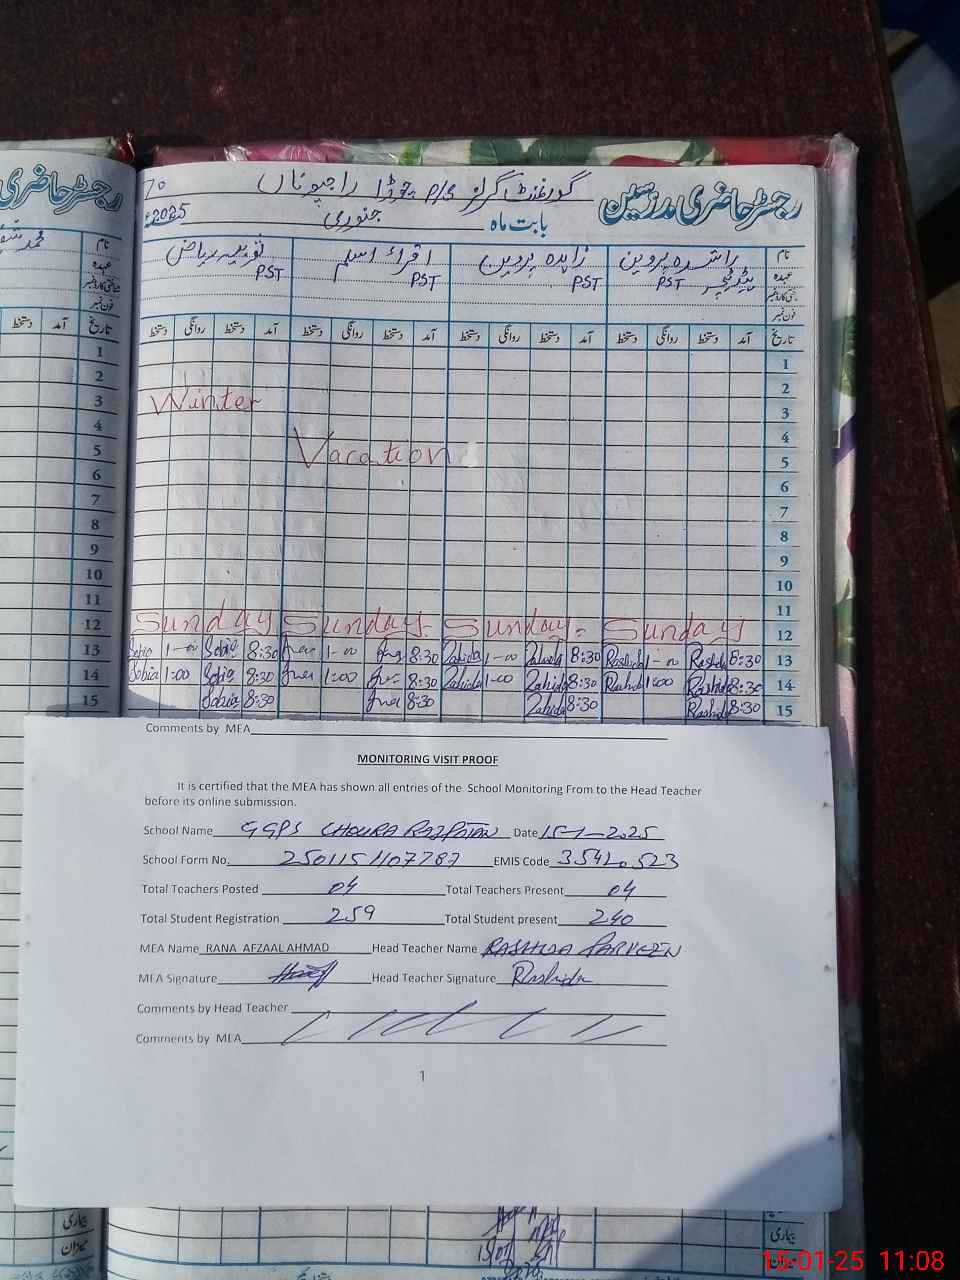 رجسٹر حاضری مدرسین
گورنمنٹ گرلز P/S چوڑا راجپوتاں
70
بابت ماہ جنوری 2025ء
نام راشدہ پروین زاہدہ پروین اقراء اسلم ثوبیہ ریاض
عہدہ ہیڈ ٹیچر PST PST PST PST
شناختی کارڈ نمبر
فون نمبر
تاریخ آمد دستخط روانگی دستخط آمد دستخط روانگی دستخط آمد دستخط روانگی دستخط آمد دستخط روانگی دستخط
1 1
2 2
3 Winter 3
4 4
5 Vacation 5
6 6
7 7
8 8
9 9
10 10
11 11
12 Sunday Sunday. Sunday. Sunday 12
13 Sobia 1-00 Sobia 8:30 1-00 8:30 Zahida 1-00 Zahida 8:30 Rashida 1-00 Rashida 8:30 13
14 Sobia 1:00 Sobia 8:30 1:00 8:30 Zahida 1-00 Zahida 8:30 Rashida 1:00 Rashida 8:30 14
15 Sobia 8:30 8:30 Zahida 8:30 Rashida 8:30 15
Comments by MEA
MONITORING VISIT PROOF
It is certified that the MEA has shown all entries of the School Monitoring From to the Head Teacher
before its online submission.
School Name GGPS CHOURA RAJPOTAN Date 15-1-2025
School Form No. 2501151107787 EMIS Code 35420523
Total Teachers Posted 04 Total Teachers Present 04
Total Student Registration 259 Total Student present 240
MEA Name RANA AFZAAL AHMAD Head Teacher Name RASHIDA PARVEEN
MEA Signature Head Teacher Signature Rashida
Comments by Head Teacher
Comments by MEA
1
بیماری بیماری
میزان میزان
15-01-25 11:08